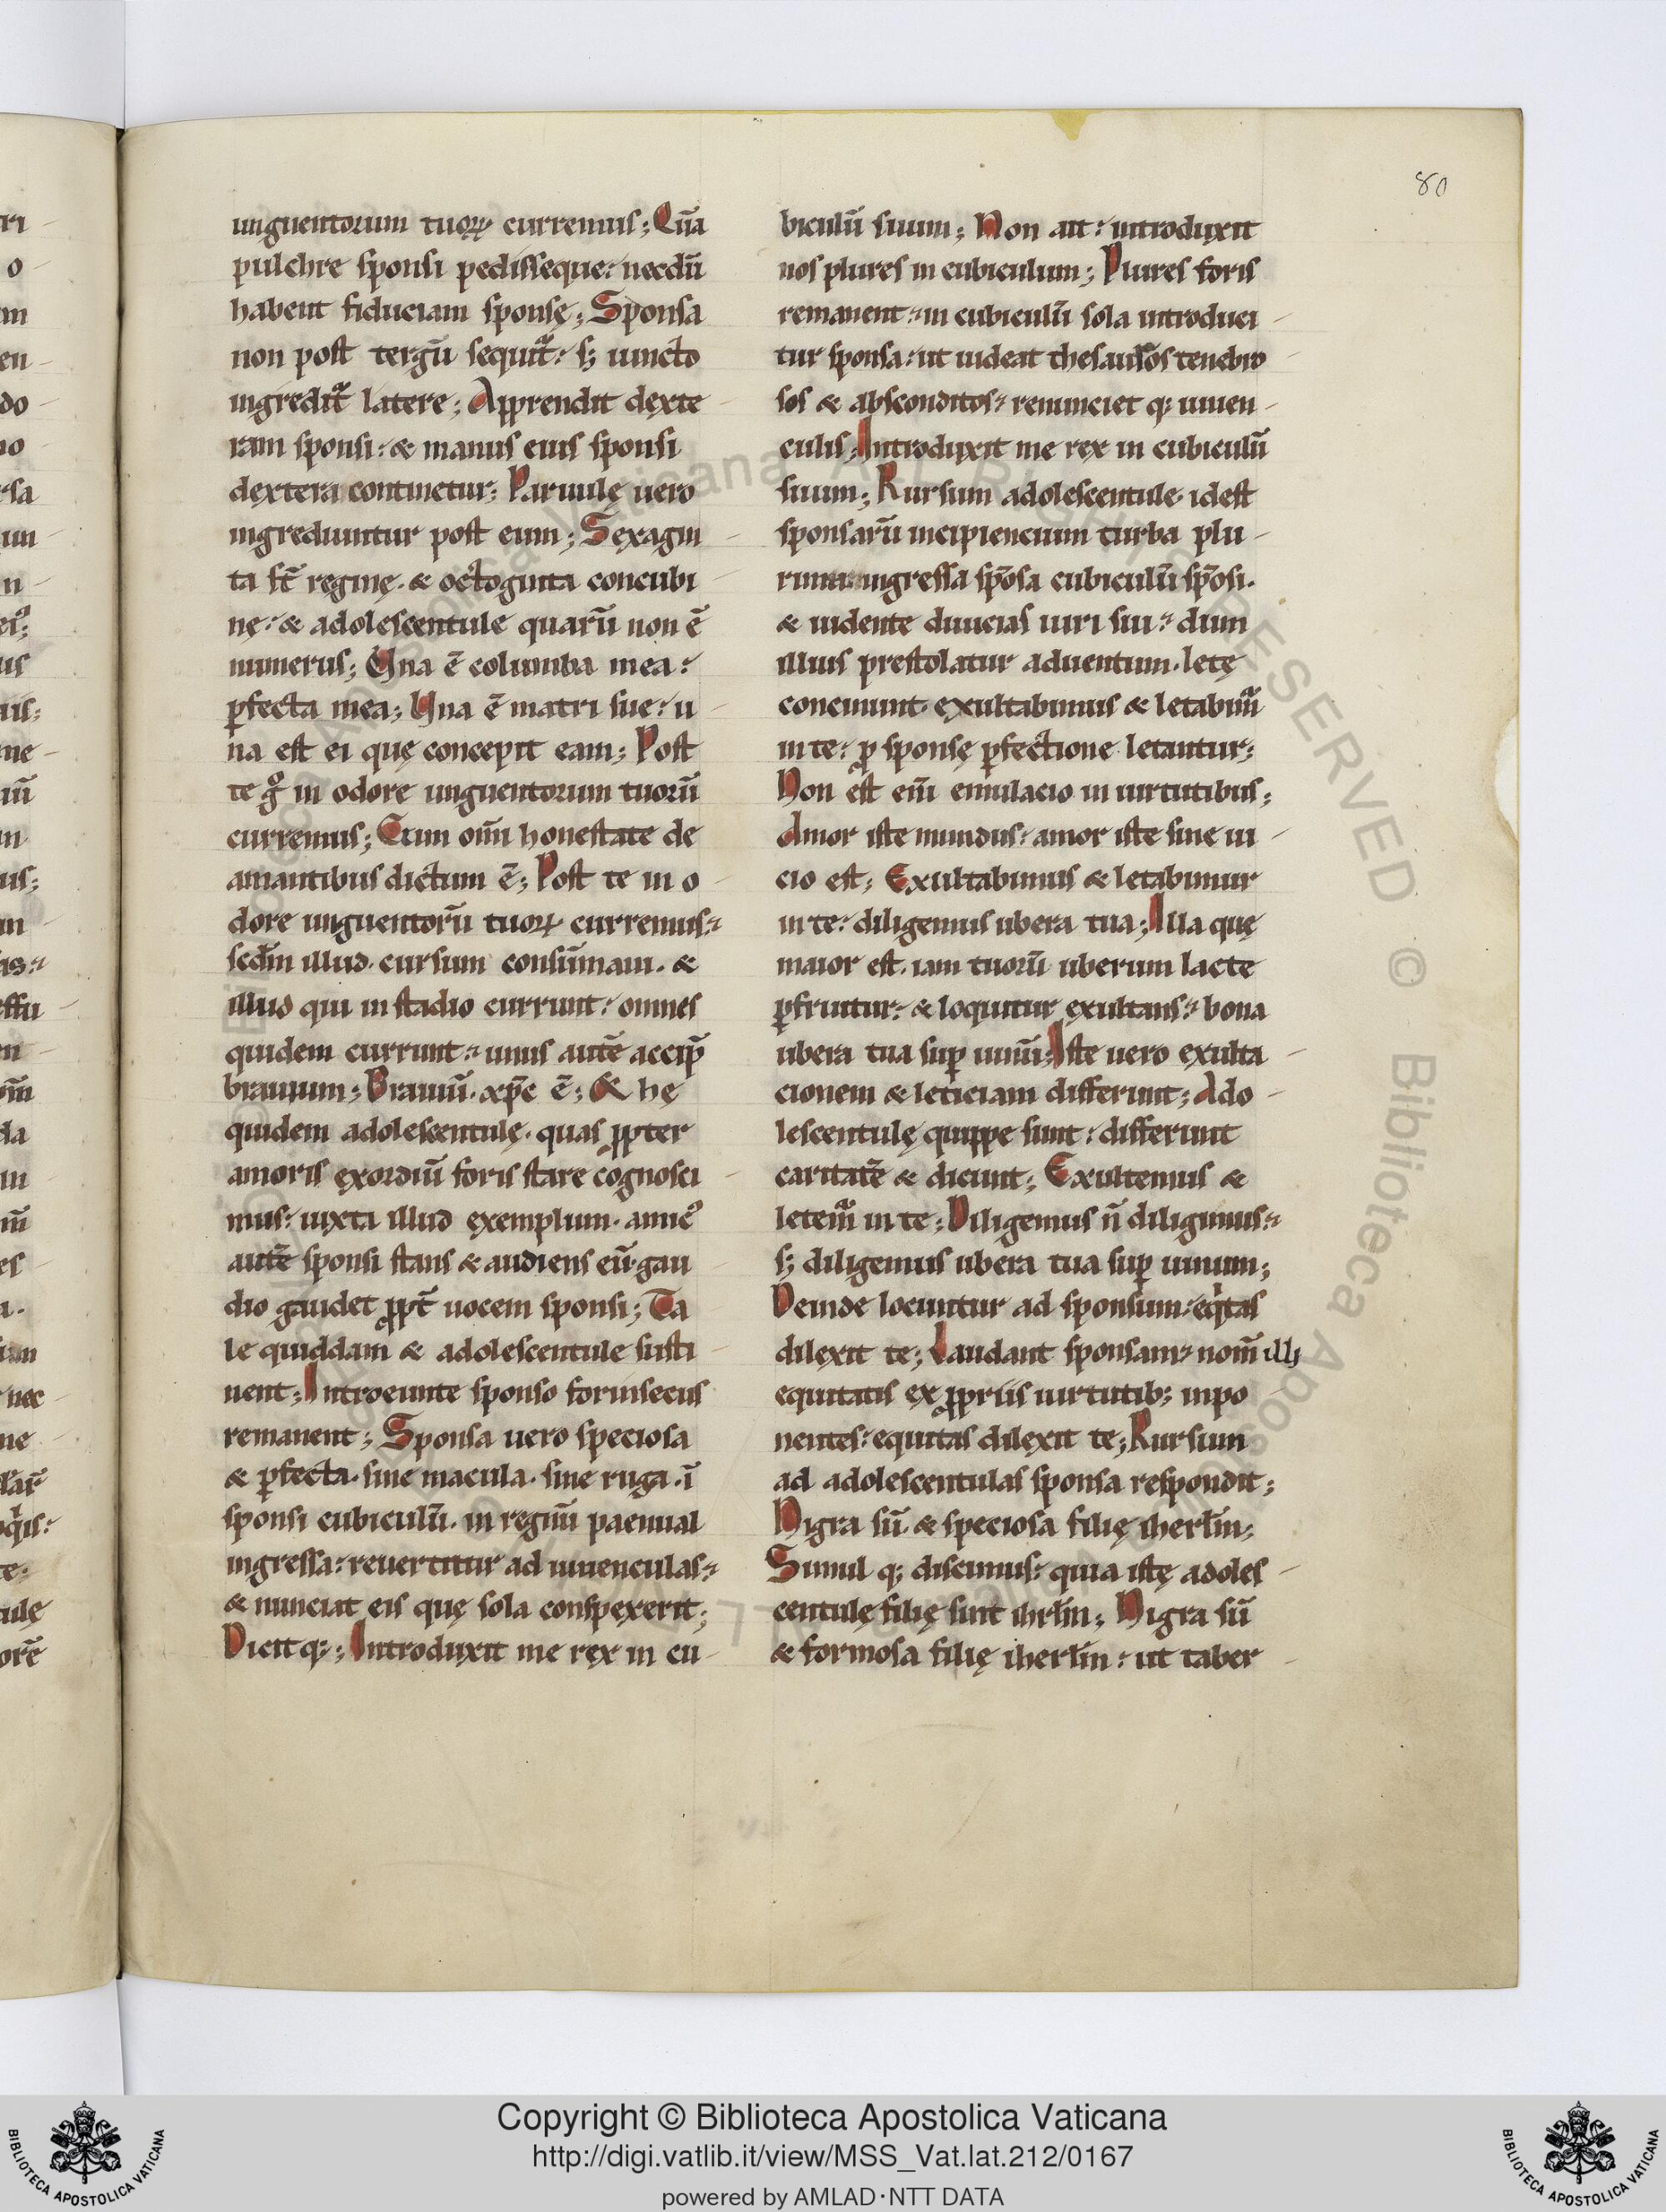 80
unguentorum tuoꝝ curremus; Quā
pulchre sponsi pedisseque: necdū
habent fiduciam sponsę; Sponsa
non post tergū sequit᷑: sꝫ iuncto
ingredit᷑ latere; Apprendit dexte
ram sponsi: & manus eius sponsi
dextera continetur; Paruulę uero
ingrediuntur post eum; Sexagin
ta st̄ reginę. & octoginta concubi
nę: & adolescentule quarū non ē
numerus; Una ē columba mea:
ꝑfecta mea; Una ē matri sue: u
na est ei quę concepit eam; Post
te gͦ in odore unguentorum tuorū
curremus; Cum om̄i honestate de
amantibus dictum ē; Post te in o
dore unguentorū tuoꝝ curremus:
scd̄m illud. cursum consūmaui. &
illud qui in stadio currunt: omnes
quidem currunt: unus autē accip̄
brauium; Brauiū. xp̄c ē; & hę
quidem adolescentulę. quas ꝓpter
amoris exordiū foris stare cognosci
mus: iuxta illud exemplum. amic᷒
autē sponsi stans & audiens eū. gau
dio gaudet ꝓpt̄ uocem sponsi; Ta
le quiddam & adolescentule susti
nent; Introeunte sponso forinsecus
remanent; Sponsa uero speciosa
& ꝑfecta. sine macula. sine ruga. ī
sponsi cubiculū. in regiū penual
ingressa: reuertitur ad iuuenculas:
& nunciat eis quę sola conspexerit;
Dicit qꝫ; Introduxit me rex in cu
biculū suum; Non ait: introduxit
nos plures in cubiculum; Plures foris
remanent: in cubiculū sola introduci
tur sponsa: ut uideat thesauros tenebro
sos & absconditos: renunciet qꝫ iuuen
culis; Introduxit me rex in cubiculū
suum; Rursum adolescentule. idest
sponsarū incipiencium turba plu
rima. ingressa spōsa cubiculū spōsi.
& uidente diuicias uiri sui: dum
illius prestolatur aduentum. letę
concinunt. exultabimus & letabim᷑
in te: ꝓ sponsę ꝑfectione letantur;
Non est eni̅ emulacio in uirtutibus;
Amor iste mundus: amor iste sine ui
cio est; Exultabimus & letabimur
in te: diligemus ubera tua; Illa quę
maior est. iam tuorū uberum lacte
ꝑfruitur: & loquitur exultans: bona
ubera tua suꝑ uinū; Iste uero exulta
cionem & leticiam differunt; Ado
lescentulę quippe sunt: differunt
caritatē & dicunt; Exultemus &
letem᷑ in te; Diligemus n̄ diligimus:
sꝫ diligemus ubera tua suꝑ uinum;
Deinde locuntur ad sponsum: eqͥtas
dilexit te; Laudant sponsam: nom̄ illi
equitatis ex ꝓpriis uirtutibꝫ inpo
nentes: equitas dilexit te; Rursum
ad adolescentulas sponsa respondit;
Nigra sū. & speciosa filię iherl̄m;
Simul qꝫ discimus: quia istę adoles
centulę filię sint ihrl̄m; Nigra sū
& formosa filię iherl̄m: ut taber
Copyright © Biblioteca Apostolica Vaticana
http://digi.vatlib.it/view/MSS_Vat.lat.212/0167
powered by AMLAD·NTT DATA
BIBLIOTECA APOSTOLICA VATICANA
BIBLIOTECA APOSTOLICA VATICANA